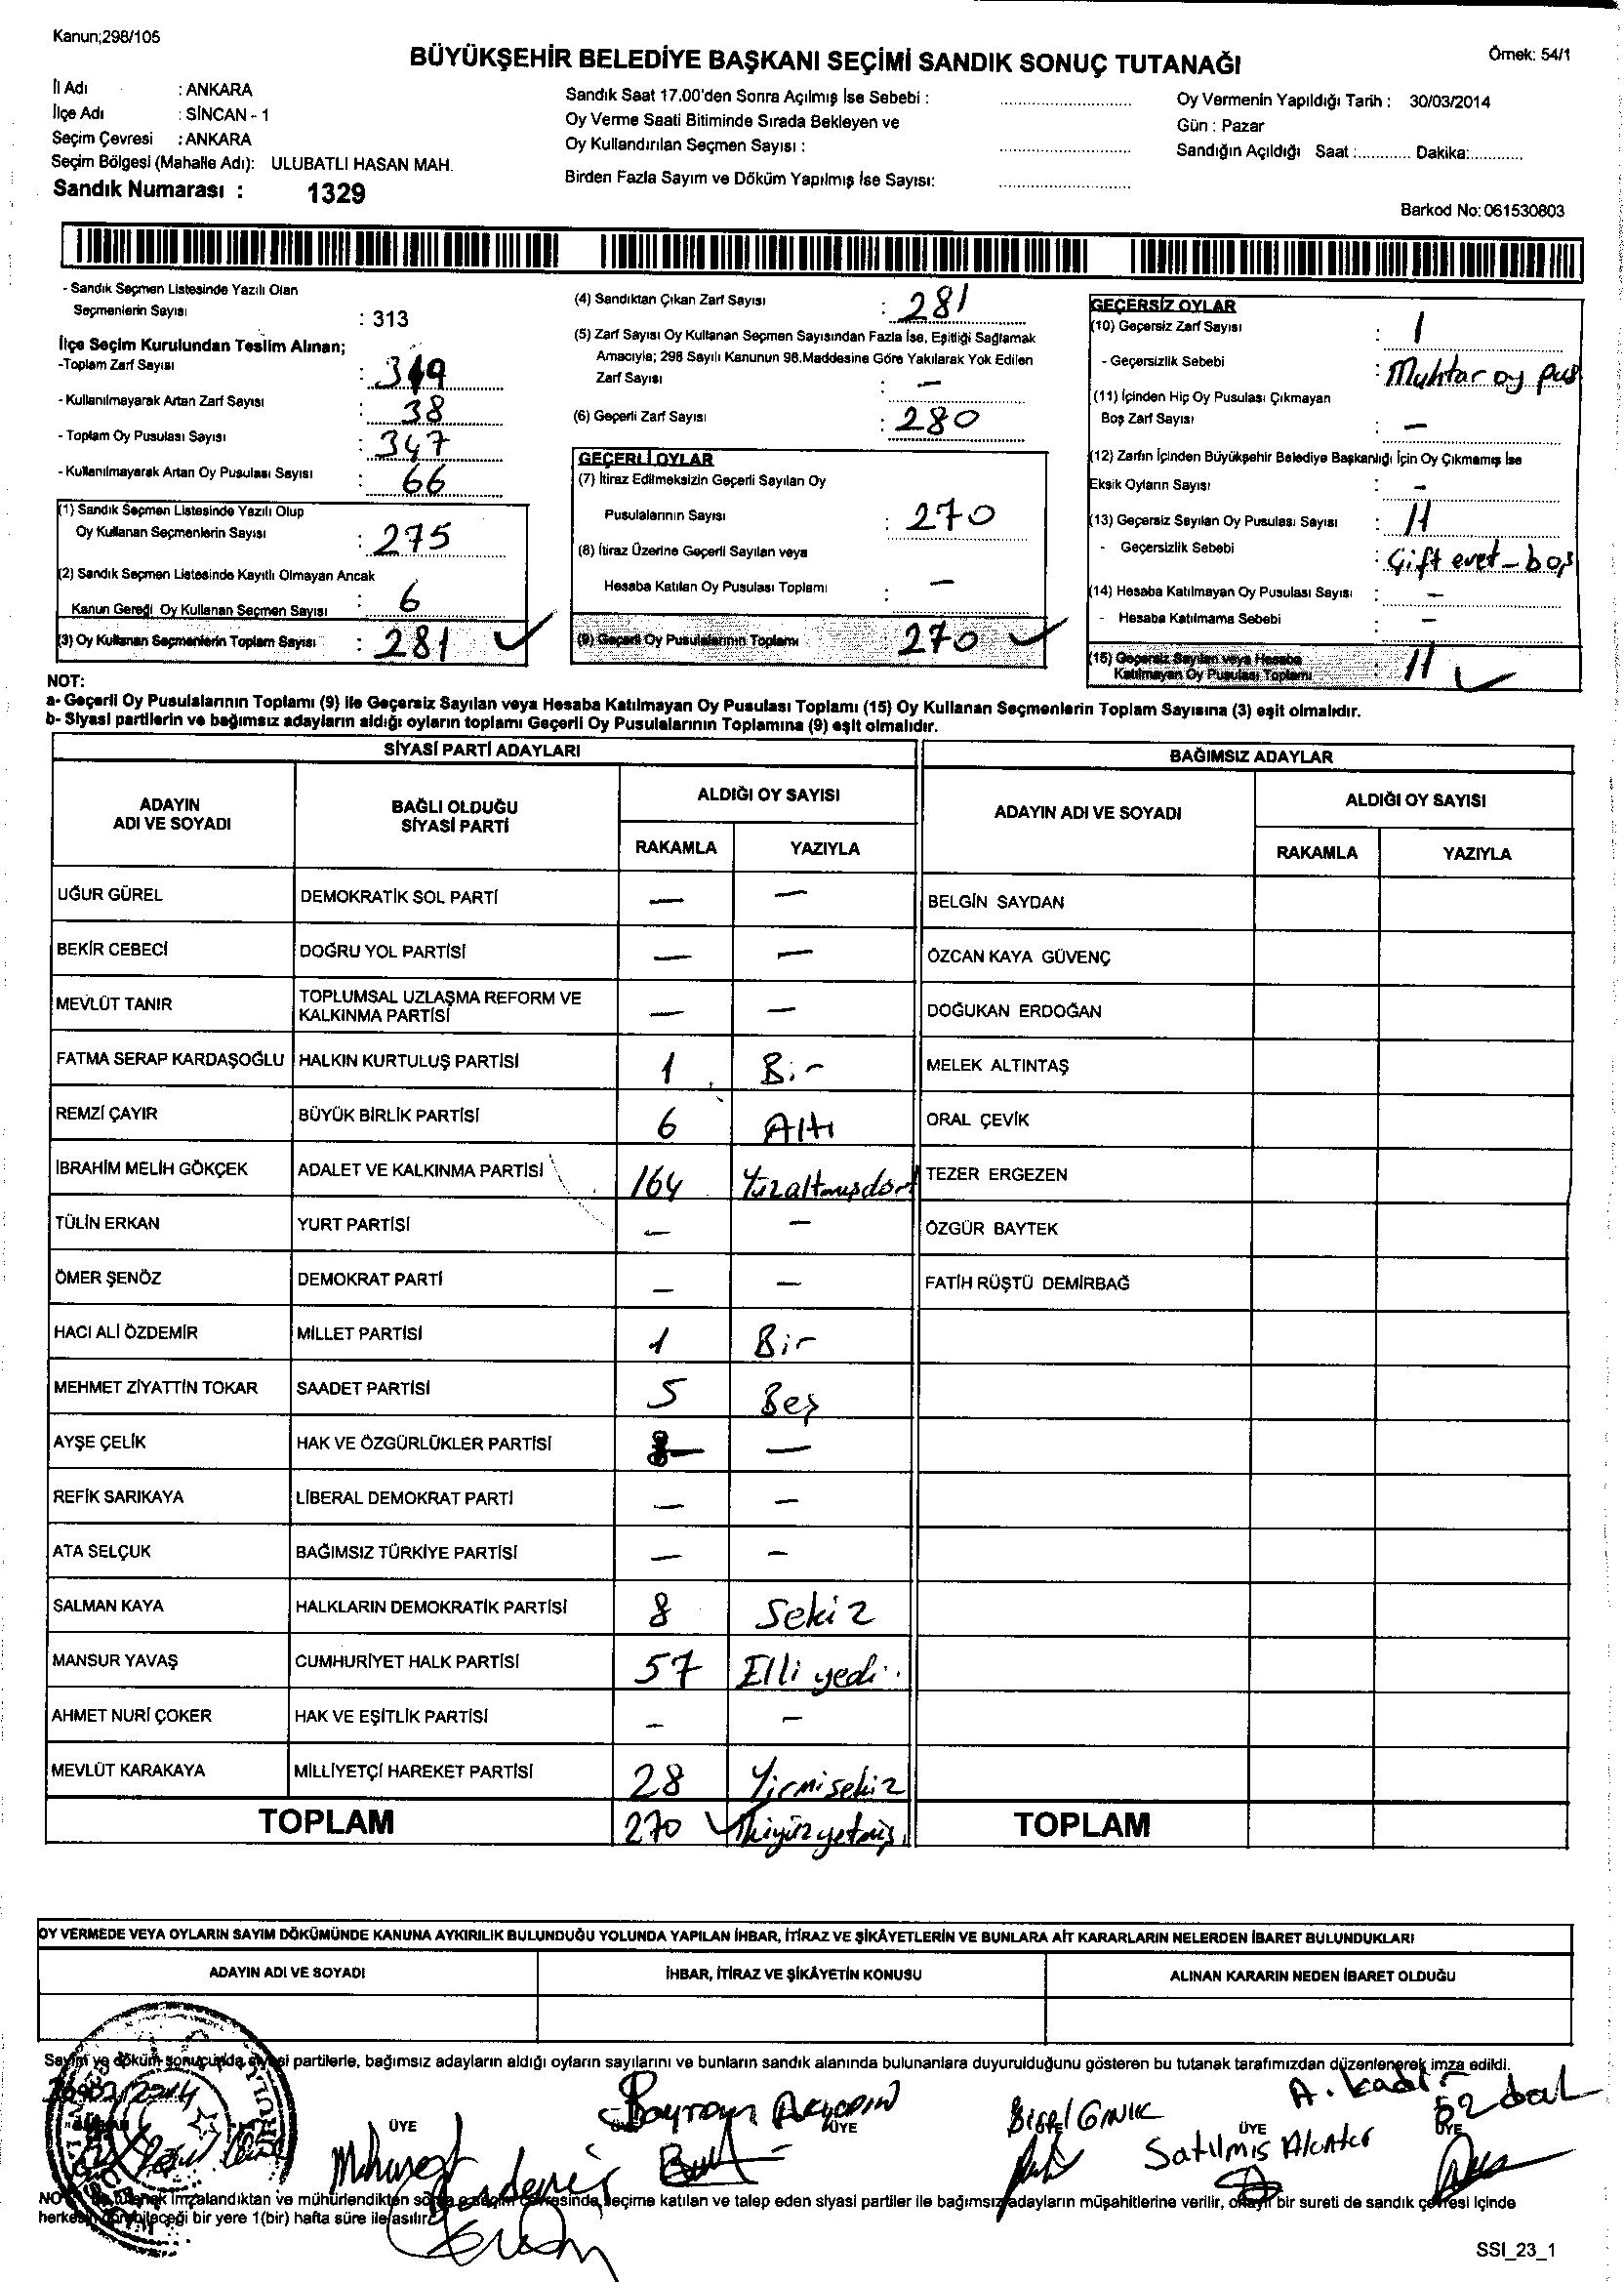 Kanun;298/105
BÜYÜKŞEHİR BELEDİYE BAŞKANI SEÇİMİ SANDIK SONUÇ TUTANAĞI
Örnek: 54/1
İl Adı : ANKARA
İlçe Adı : SİNCAN - 1
Seçim Çevresi : ANKARA
Seçim Bölgesi (Mahalle Adı): ULUBATLI HASAN MAH.
Sandık Numarası : 1329
Sandık Saat 17.00'den Sonra Açılmış İse Sebebi :
Oy Verme Saati Bitiminde Sırada Bekleyen ve
Oy Kullandırılan Seçmen Sayısı :
Birden Fazla Sayım ve Döküm Yapılmış İse Sayısı:
Oy Vermenin Yapıldığı Tarih : 30/03/2014
Gün : Pazar
Sandığın Açıldığı Saat :............ Dakika:............
Barkod No: 061530803
- Sandık Seçmen Listesinde Yazılı Olan
Seçmenlerin Sayısı : 313
İlçe Seçim Kurulundan Teslim Alınan;
-Toplam Zarf Sayısı : 319
- Kullanılmayarak Artan Zarf Sayısı : 38
- Toplam Oy Pusulası Sayısı : 347
- Kullanılmayarak Artan Oy Pusulası Sayısı : 66
(1) Sandık Seçmen Listesinde Yazılı Olup
Oy Kullanan Seçmenlerin Sayısı : 275
(2) Sandık Seçmen Listesinde Kayıtlı Olmayan Ancak
Kanun Gereği Oy Kullanan Seçmen Sayısı : 6
(3) Oy Kullanan Seçmenlerin Toplam Sayısı : 281 ✓
(4) Sandıktan Çıkan Zarf Sayısı : 281
(5) Zarf Sayısı Oy Kullanan Seçmen Sayısından Fazla İse, Eşitliği Sağlamak
Amacıyla; 298 Sayılı Kanunun 98.Maddesine Göre Yakılarak Yok Edilen
Zarf Sayısı : —
(6) Geçerli Zarf Sayısı : 280
GEÇERLİ OYLAR
(7) İtiraz Edilmeksizin Geçerli Sayılan Oy
Pusulalarının Sayısı : 270
(8) İtiraz Üzerine Geçerli Sayılan veya
Hesaba Katılan Oy Pusulası Toplamı : —
(9) Geçerli Oy Pusulalarının Toplamı 270 ✓
GEÇERSİZ OYLAR
(10) Geçersiz Zarf Sayısı : 1
- Geçersizlik Sebebi : Muhtar oy pus
(11) İçinden Hiç Oy Pusulası Çıkmayan
Boş Zarf Sayısı : —
(12) Zarfın İçinden Büyükşehir Belediye Başkanlığı İçin Oy Çıkmamış İse
Eksik Oyların Sayısı : —
(13) Geçersiz Sayılan Oy Pusulası Sayısı : 11
- Geçersizlik Sebebi : Çift evet - boş
(14) Hesaba Katılmayan Oy Pusulası Sayısı : —
- Hesaba Katılmama Sebebi : —
(15) Geçersiz Sayılan veya Hesaba
Katılmayan Oy Pusulası Toplamı : 11 ✓
NOT:
a- Geçerli Oy Pusulalarının Toplamı (9) ile Geçersiz Sayılan veya Hesaba Katılmayan Oy Pusulası Toplamı (15) Oy Kullanan Seçmenlerin Toplam Sayısına (3) eşit olmalıdır.
b- Siyasi partilerin ve bağımsız adayların aldığı oyların toplamı Geçerli Oy Pusulalarının Toplamına (9) eşit olmalıdır.
SİYASİ PARTİ ADAYLARI BAĞIMSIZ ADAYLAR
ADAYIN ADI VE SOYADI BAĞLI OLDUĞU SİYASİ PARTİ ALDIĞI OY SAYISI ADAYIN ADI VE SOYADI ALDIĞI OY SAYISI
RAKAMLA YAZIYLA RAKAMLA YAZIYLA
UĞUR GÜREL DEMOKRATİK SOL PARTİ — — BELGİN SAYDAN
BEKİR CEBECİ DOĞRU YOL PARTİSİ — — ÖZCAN KAYA GÜVENÇ
MEVLÜT TANIR TOPLUMSAL UZLAŞMA REFORM VE KALKINMA PARTİSİ — — DOĞUKAN ERDOĞAN
FATMA SERAP KARDAŞOĞLU HALKIN KURTULUŞ PARTİSİ 1 Bir MELEK ALTINTAŞ
REMZİ ÇAYIR BÜYÜK BİRLİK PARTİSİ 6 Altı ORAL ÇEVİK
İBRAHİM MELİH GÖKÇEK ADALET VE KALKINMA PARTİSİ 164 Yüzaltmışdört TEZER ERGEZEN
TÜLİN ERKAN YURT PARTİSİ — — ÖZGÜR BAYTEK
ÖMER ŞENÖZ DEMOKRAT PARTİ — — FATİH RÜŞTÜ DEMİRBAĞ
HACI ALİ ÖZDEMİR MİLLET PARTİSİ 1 Bir
MEHMET ZİYATTİN TOKAR SAADET PARTİSİ 5 Beş
AYŞE ÇELİK HAK VE ÖZGÜRLÜKLER PARTİSİ — —
REFİK SARIKAYA LİBERAL DEMOKRAT PARTİ — —
ATA SELÇUK BAĞIMSIZ TÜRKİYE PARTİSİ — —
SALMAN KAYA HALKLARIN DEMOKRATİK PARTİSİ 8 Sekiz
MANSUR YAVAŞ CUMHURİYET HALK PARTİSİ 57 Elli yedi
AHMET NURİ ÇOKER HAK VE EŞİTLİK PARTİSİ — —
MEVLÜT KARAKAYA MİLLİYETÇİ HAREKET PARTİSİ 28 Yirmisekiz
TOPLAM 270 ✓ İkiyüzyetmiş TOPLAM
OY VERMEDE VEYA OYLARIN SAYIM DÖKÜMÜNDE KANUNA AYKIRILIK BULUNDUĞU YOLUNDA YAPILAN İHBAR, İTİRAZ VE ŞİKÂYETLERİN VE BUNLARA AİT KARARLARIN NELERDEN İBARET BULUNDUKLARI
ADAYIN ADI VE SOYADI İHBAR, İTİRAZ VE ŞİKÂYETİN KONUSU ALINAN KARARIN NEDEN İBARET OLDUĞU
Sayım ve döküm sonucunda siyasi partilerle, bağımsız adayların aldığı oyların sayılarını ve bunların sandık alanında bulunanlara duyurulduğunu gösteren bu tutanak tarafımızdan düzenlenerek imza edildi.
Bayram
A. Kadir
ÜYE ÜYE ÜYE ÜYE
Satılmış
imzalandıktan ve mühürlendikten seçime katılan ve talep eden siyasi partiler ile bağımsız adayların müşahitlerine verilir, onaylı bir sureti de sandık çevresi içinde
herkesin görebileceği bir yere 1(bir) hafta süre ile asılır.
SSI_23_1